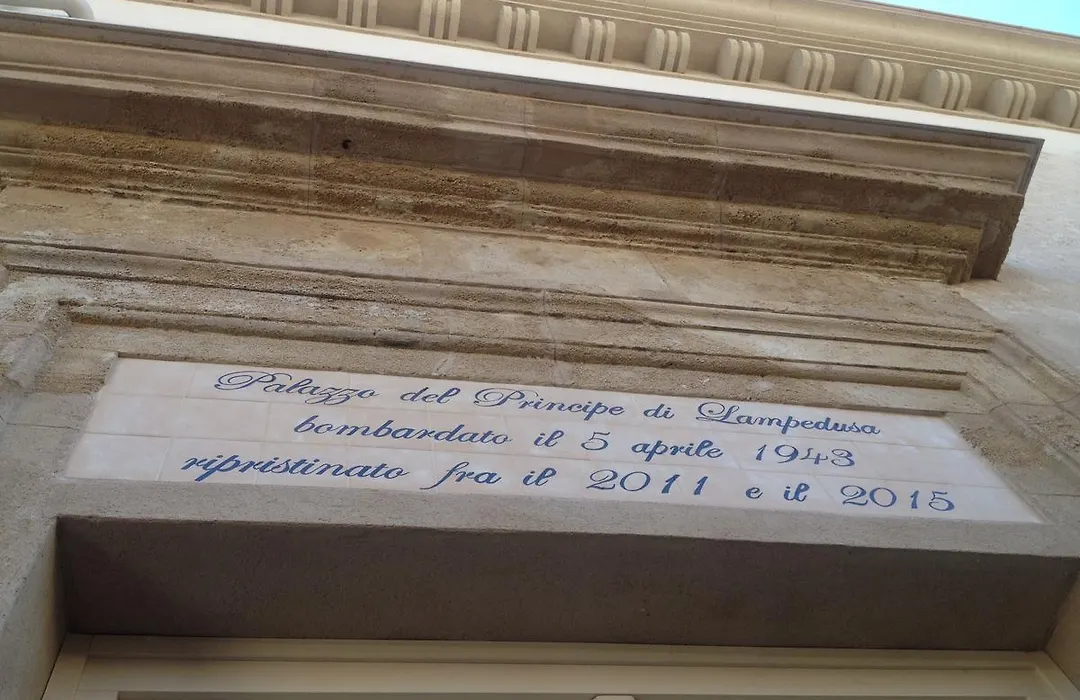 Palazzo del Principe di Lampedusa
bombardato il 5 aprile 1943
ripristinato fra il 2011 e il 2015